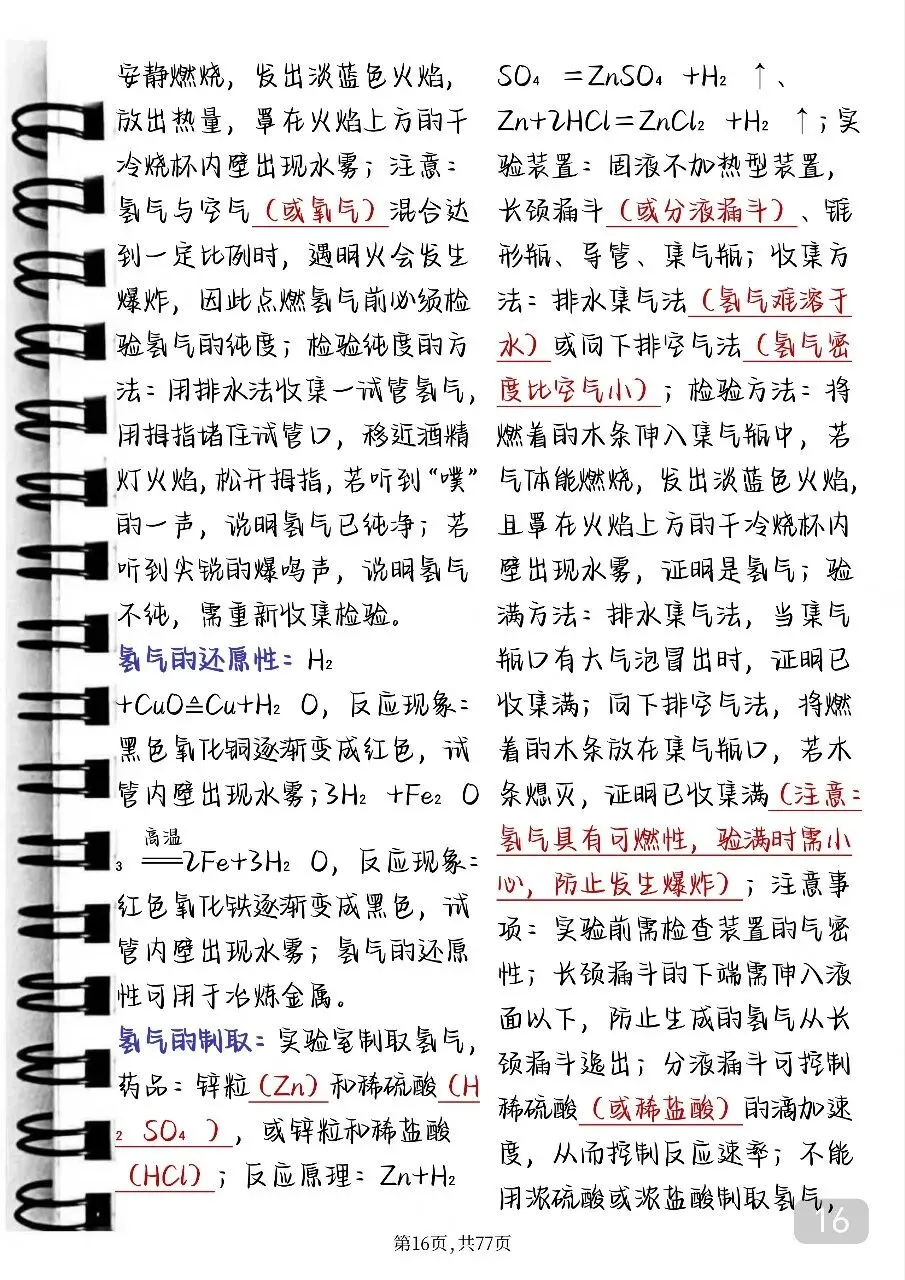 安静燃烧，发出淡蓝色火焰，
放出热量，罩在火焰上方的干
冷烧杯内壁出现水雾；注意：
氢气与空气（或氧气）混合达
到一定比例时，遇明火会发生
爆炸，因此点燃氢气前必须检
验氢气的纯度；检验纯度的方
法：用排水法收集一试管氢气，
用拇指堵住试管口，移近酒精
灯火焰，松开拇指，若听到“噗”
的一声，说明氢气已纯净；若
听到尖锐的爆鸣声，说明氢气
不纯，需重新收集检验。
氢气的还原性：H₂
+CuO≜Cu+H₂ O，反应现象：
黑色氧化铜逐渐变成红色，试
管内壁出现水雾；3H₂ +Fe₂ O
₃ 高温══2Fe+3H₂ O，反应现象：
红色氧化铁逐渐变成黑色，试
管内壁出现水雾；氢气的还原
性可用于冶炼金属。
氢气的制取：实验室制取氢气，
药品：锌粒（Zn）和稀硫酸（H
₂ SO₄ ），或锌粒和稀盐酸
（HCl）；反应原理：Zn+H₂
SO₄ =ZnSO₄ +H₂ ↑、
Zn+2HCl=ZnCl₂ +H₂ ↑；实
验装置：固液不加热型装置，
长颈漏斗（或分液漏斗）、锥
形瓶、导管、集气瓶；收集方
法：排水集气法（氢气难溶于
水）或向下排空气法（氢气密
度比空气小）；检验方法：将
燃着的木条伸入集气瓶中，若
气体能燃烧，发出淡蓝色火焰，
且罩在火焰上方的干冷烧杯内
壁出现水雾，证明是氢气；验
满方法：排水集气法，当集气
瓶口有大气泡冒出时，证明已
收集满；向下排空气法，将燃
着的木条放在集气瓶口，若木
条熄灭，证明已收集满（注意：
氢气具有可燃性，验满时需小
心，防止发生爆炸）；注意事
项：实验前需检查装置的气密
性；长颈漏斗的下端需伸入液
面以下，防止生成的氢气从长
颈漏斗逸出；分液漏斗可控制
稀硫酸（或稀盐酸）的滴加速
度，从而控制反应速率；不能
用浓硫酸或浓盐酸制取氢气，
16
第16页，共77页